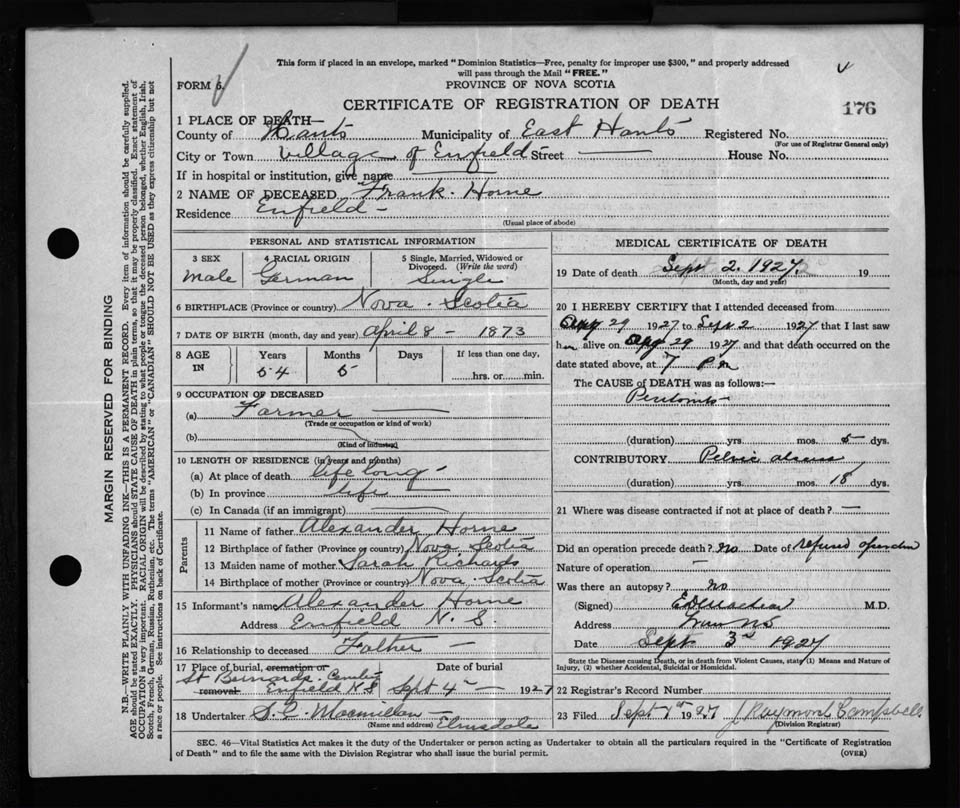 This form if placed in an envelope, marked "Dominion Statistics—Free, penalty for improper use $300," and properly addressed
will pass through the Mail "FREE."
FORM 6.
PROVINCE OF NOVA SCOTIA
CERTIFICATE OF REGISTRATION OF DEATH
176
1 PLACE OF DEATH—
County of Hants Municipality of East Hants Registered No.
(For use of Registrar General only)
City or Town Village of Enfield Street — House No.
If in hospital or institution, give name
2 NAME OF DECEASED Frank. Horne
Residence Enfield -
(Usual place of abode)
PERSONAL AND STATISTICAL INFORMATION
3 SEX 4 RACIAL ORIGIN 5 Single, Married, Widowed or
Divorced. (Write the word)
Male German Single
6 BIRTHPLACE (Province or country) Nova. Scotia
7 DATE OF BIRTH (month, day and year) April 8 - 1873
8 AGE IN Years Months Days If less than one day,
54 5 hrs. or min.
9 OCCUPATION OF DECEASED
(a) Farmer —
(Trade or occupation or kind of work)
(b)
(Kind of industry)
10 LENGTH OF RESIDENCE (in years and months)
(a) At place of death life long -
(b) In province life -
(c) In Canada (if an immigrant) —
Parents
11 Name of father Alexander Horne
12 Birthplace of father (Province or country) Nova Scotia
13 Maiden name of mother Sarah Richards
14 Birthplace of mother (Province or country) Nova. Scotia
15 Informant's name Alexander Horne
Address Enfield N. S.
16 Relationship to deceased Father -
17 Place of burial, cremation or Date of burial
St Bernards. Cemetery
removal Enfield N S Sept 4 - 1927
18 Undertaker Macmillan - Elmsdale
(Name and address)
MEDICAL CERTIFICATE OF DEATH
19 Date of death Sept 2. 1927. 19
(Month, day and year)
20 I HEREBY CERTIFY that I attended deceased from
Aug 29 1927 to Sept 2 1927 that I last saw
h alive on Aug 29 1927 and that death occurred on the
date stated above, at 7 P m
The CAUSE OF DEATH was as follows:—
(duration) yrs. mos. 5 dys.
CONTRIBUTORY Pelvic abscess
(duration) yrs. mos. 18 dys.
21 Where was disease contracted if not at place of death? —
Did an operation precede death? no Date of refused operation
Nature of operation —
Was there an autopsy? no
(Signed) M.D.
Address
Date Sept 3rd 1927
State the Disease causing Death, or in death from Violent Causes, state (1) Means and Nature of
Injury, (2) whether Accidental, Suicidal or Homicidal.
22 Registrar's Record Number
23 Filed Sept 1927 Raymond Campbell
(Division Registrar)
SEC. 46—Vital Statistics Act makes it the duty of the Undertaker or person acting as Undertaker to obtain all the particulars required in the "Certificate of Registration
of Death" and to file the same with the Division Registrar who shall issue the burial permit.
(OVER)
MARGIN RESERVED FOR BINDING
N.B.—WRITE PLAINLY WITH UNFADING INK—THIS IS A PERMANENT RECORD. Every item of information should be carefully supplied.
AGE should be stated EXACTLY. PHYSICIANS should STATE CAUSE OF DEATH in plain terms, so that it may be properly classified. Exact statement of
OCCUPATION is very important. RACIAL ORIGIN will be described by stating to what people or tongue the deceased person belonged, whether English, Irish,
Scotch, French, German, Russian, Ruthenian, etc. The terms "AMERICAN" or "CANADIAN" SHOULD NOT BE USED as they express citizenship but not
a race or people. See instructions on back of Certificate.